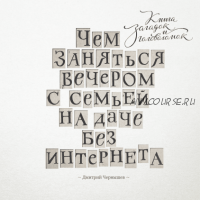 Книга
загадок
и
головоломок
Чем
заняться
вечером
с семьёй
на даче
без
интернета
— Дмитрий Чернышев —